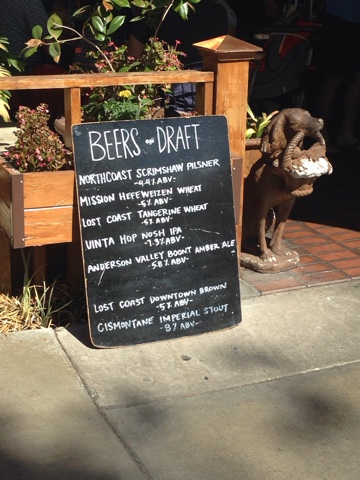 BEERS on DRAFT
NORTHCOAST SCRIMSHAW PILSNER
-4.4% ABV-
MISSION HEFEWEIZEN WHEAT
-5% ABV-
LOST COAST TANGERINE WHEAT
-5% ABV-
UINTA HOP NOSH IPA
-7.3% ABV-
ANDERSON VALLEY BOONT AMBER ALE
-5.8% ABV-
LOST COAST DOWNTOWN BROWN
-5% ABV-
CISMONTANE IMPERIAL STOUT
-8% ABV-